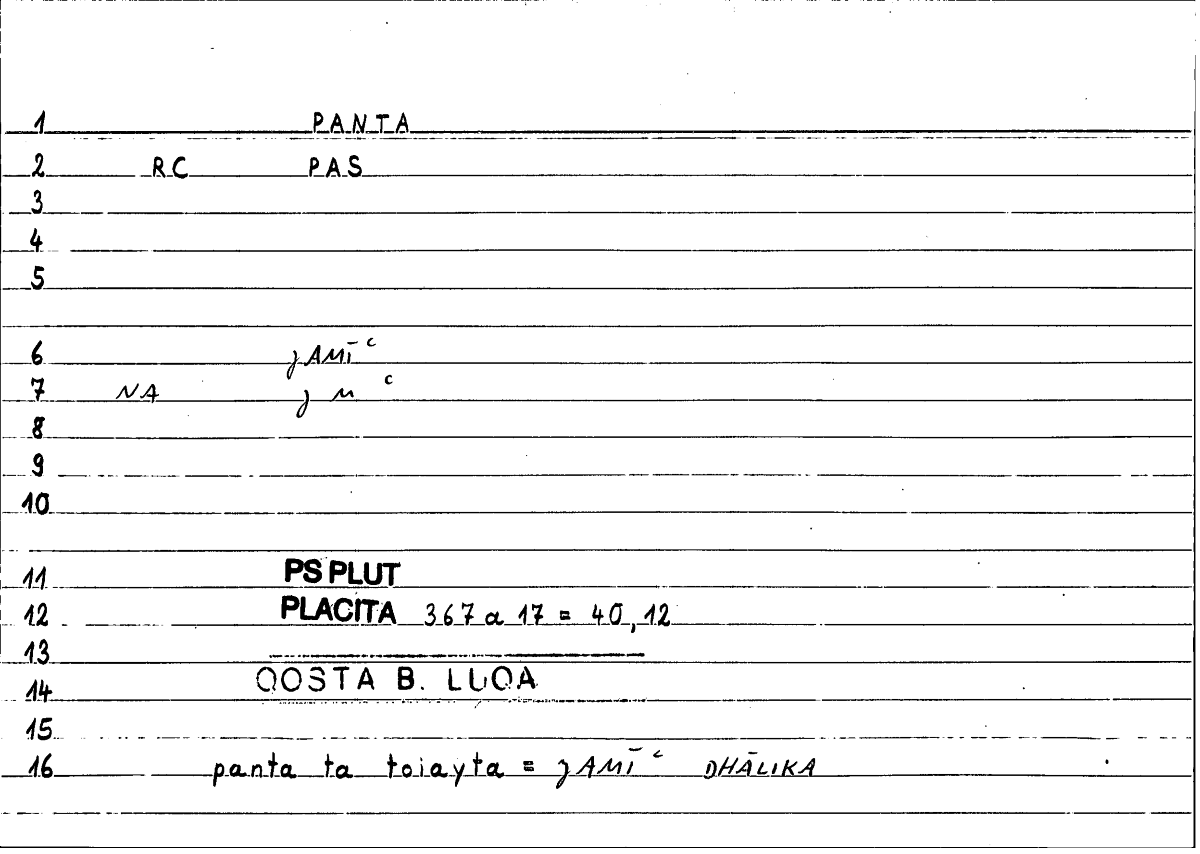 1 PANTA
2 RC PAS
3
4
5
6 ʒAMĪᶜ
7 NA ʒ M ᶜ
8
9
10
11 PS PLUT
12 PLACITA 367a 17 = 40,12
13
14 QOSTA B. LUQA
15
16 panta ta toiayta = ʒAMĪᶜ DHĀLIKA